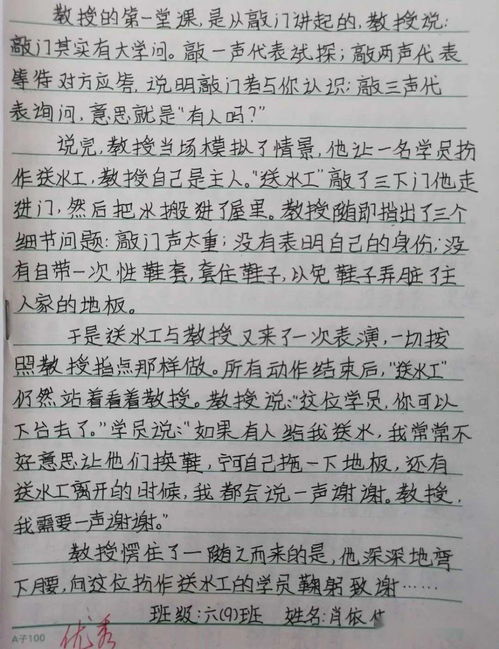 教授的第一堂课,是从敲门讲起的,教授说:
敲门其实有大学问。敲一声代表试探;敲两声代表
等待对方应答,说明敲门者与你认识;敲三声代
表询问,意思就是"有人吗?"
说完,教授当场模拟了情景,他让一名学员扮
作送水工,教授自己是主人。"送水工"敲了三下门他走
进门,然后把水搬进了屋里。教授随即指出了三个
细节问题:敲门声太重;没有表明自己的身伤;没
有自带一次性鞋套,套住鞋子,以免鞋子弄脏了主
人家的地板。
于是送水工与教授又来了一次表演,一切按
照教授指点那样做。所有动作结束后,"送水工"
仍然站着看着教授。教授说:"这位学员,你可以
下台去了。"学员说:"如果有人给我送水,我常常不
好意思让他们换鞋,宁可自己拖一下地板,还有
送水工离开的时候,我都会说一声谢谢。教授,
我需要一声谢谢。"
教授愣住了一随之而来的是,他深深地弯
下腰,向这位扮作送水工的学员鞠躬致谢……
班级:六(9)班 姓名:肖依
A子100
优秀